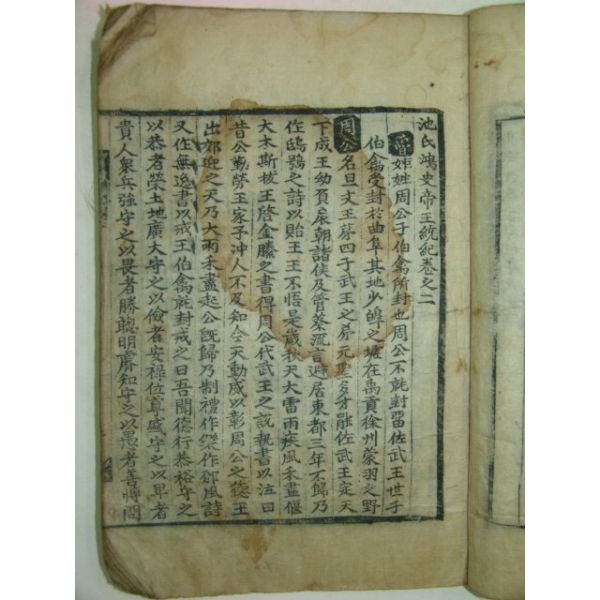 池氏鴻史帝王統紀卷之二
魯姬姓周公子伯禽所封也周公不就封留佐武王世子
伯禽受封於曲阜其地少皥之墟在禹貢徐州蒙羽之野
周公名旦文王第四子武王之弟元聖多才能佐武王定天
下成王幼負扆朝諸侯及管蔡流言避居東都三年不歸乃
作鴟鴞之詩以貽王王不悟是歲秋天大雷雨疾風禾盡偃
大木斯拔王啓金縢之書得周公代武王之說執書以泣曰
昔公勤勞王家予冲人不及知今天動威以彰周公之德王
出郊迎之天乃大雨禾盡起公旣歸乃制禮作樂作豳風詩
又作無逸書以戒王伯禽就封戒之曰吾聞德行恭裕守之
以恭者榮土地廣大守之以儉者安祿位尊盛守之以卑者
貴人衆兵強守之以畏者勝聰明睿知守之以愚者善博聞